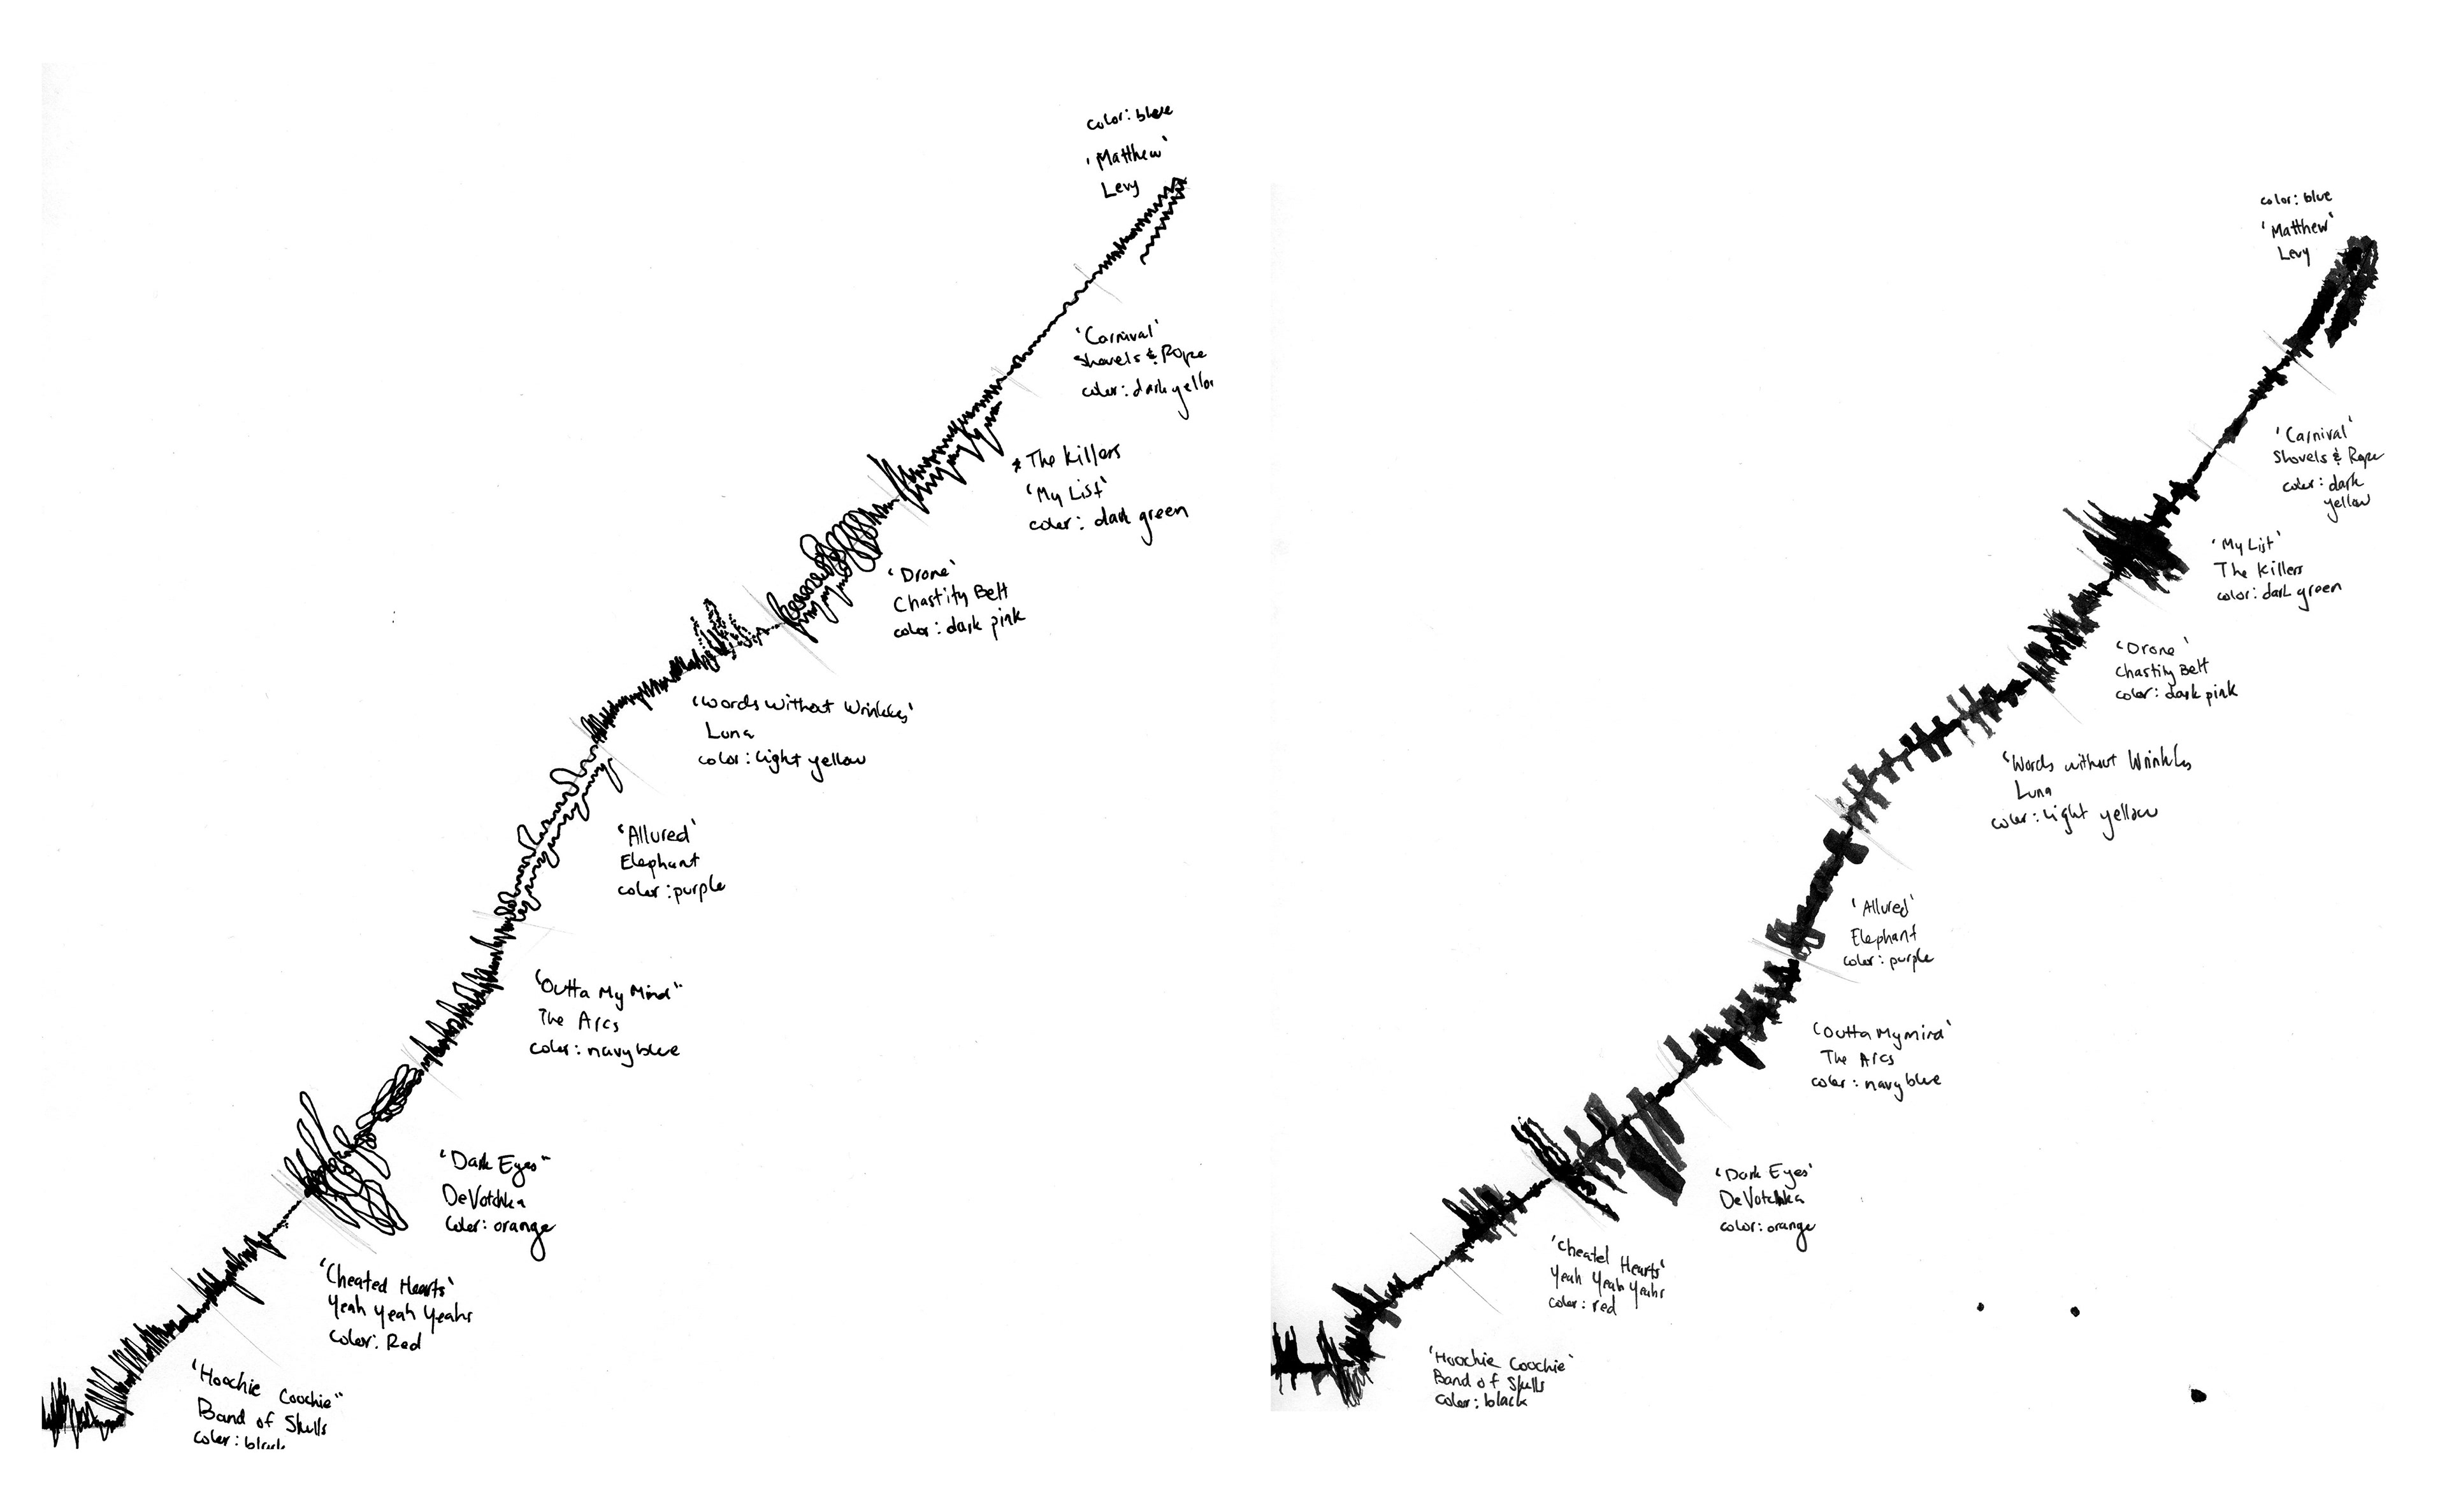 color: blue
'Matthew'
Levy
'Carnival'
Shovels & Rope
color: dark yellow
* The Killers
'My List'
color: dark green
'Drone'
Chastity Belt
color: dark pink
'Words Without Wrinkles'
Luna
color: light yellow
'Allured'
Elephant
color: purple
"Outta My Mind"
The Arcs
color: navy blue
"Dark Eyes"
DeVotchka
color: orange
'Cheated Hearts'
Yeah Yeah Yeahs
color: Red
'Hoochie Coochie"
Band of Skulls
color: black
color: blue
'Matthew'
Levy
'Carnival'
Shovels & Rope
color: dark
yellow
'My List'
The Killers
color: dark green
'Drone'
Chastity Belt
color: dark pink
'Words without Wrinkles
Luna
color: light yellow
'Allured'
Elephant
color: purple
'Outta My mind'
The Arcs
color: navy blue
'Dark Eyes'
DeVotchka
color: orange
'Cheated Hearts'
Yeah Yeah Yeahs
color: red
'Hoochie Coochie'
Band of Skulls
color: black